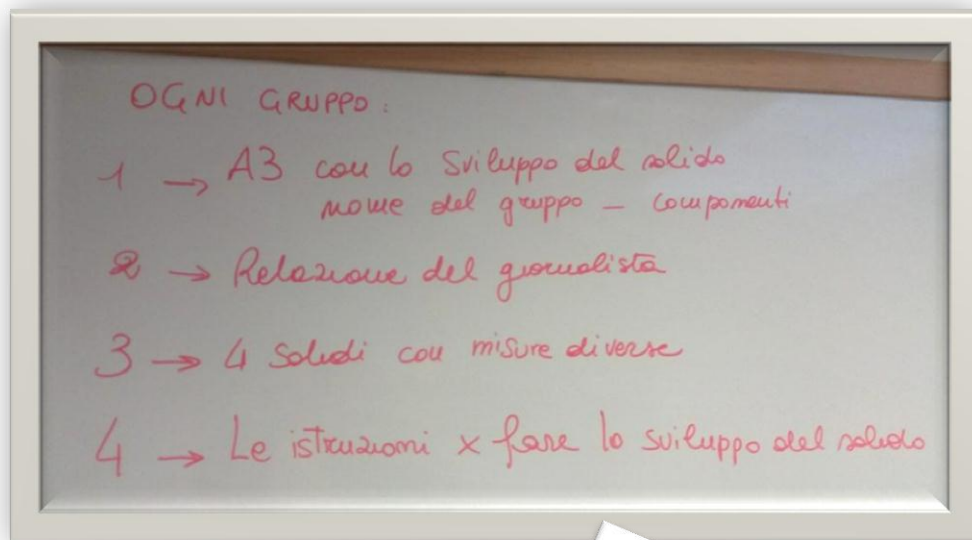 OGNI GRUPPO:
1 → A3 con lo sviluppo del solido
nome del gruppo - componenti
2 → Relazione del giornalista
3 → 4 solidi con misure diverse
4 → Le istruzioni x fare lo sviluppo del solido